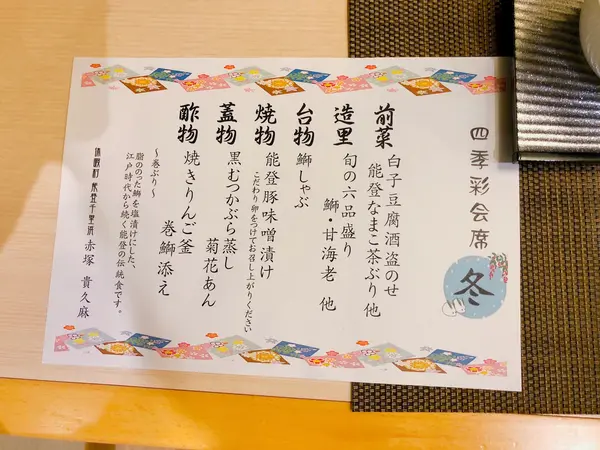 四季彩会席
冬
前菜 白子豆腐酒盗のせ
能登なまこ茶ぶり他
造里 旬の六品盛り
鰤・甘海老 他
台物 鰤しゃぶ
焼物 能登豚味噌漬け
こだわり卵をつけてお召し上がりください
蓋物 黒むつかぶら蒸し
菊花あん
酢物 焼きりんご釜
巻鰤添え
～巻ぶり～
脂ののった鰤を塩漬けにした、
江戸時代から続く能登の伝統食です。
休暇村 能登千里浜 赤塚 貴久麻